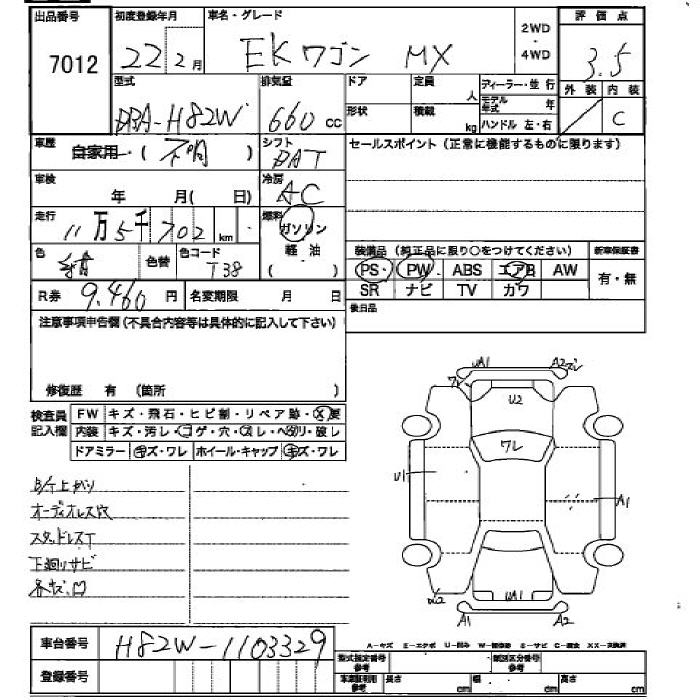 出品番号 7012
初度登録年月 22年2月
車名・グレード EKワゴン MX
2WD・4WD
評価点 3.5
外装 内装 C
型式 DBA-H82W
排気量 660cc
ドア 形状
定員 人 積載 kg
ディーラー・並行
モデル年式 年
ハンドル 左・右
車歴 自家用・(不明)
シフト DAT
セールスポイント(正常に機能するものに限ります)
車検 年 月( 日)
冷房 AC
走行 11万5千702km
燃料 ガソリン 軽油 ( )
色 紺 色替 色コード T38
装備品(純正品に限り○をつけてください) 新車保証書
PS・ PW ABS エアB AW 有・無
SR ナビ TV カワ
R券 9,460円 名変期限 月 日
後日品
注意事項申告欄(不具合内容等は具体的に記入して下さい)
修復歴 有 (箇所 )
検査員記入欄
FW キズ・飛石・ヒビ割・リペア跡・X要
内装 キズ・汚レ・コゲ・穴・スレ・ヘタリ・破レ
ドアミラー キズ・ワレ ホイール・キャップ キズ・ワレ
UA1 A2
ワレ
U2
ワレ
U1 A1
UA1
A1 A2
B/下上がり
オーディオレス穴
スタッドレスT
下廻りサビ
各キズ凹
車台番号 H82W-1103329
登録番号
A-キズ E-エクボ U-凹み W-補修跡 S-サビ C-腐食 XX-交換済
型式指定番号 参考 類別区分番号 参考
車庫証明用 参考 長さ cm 幅 cm 高さ cm